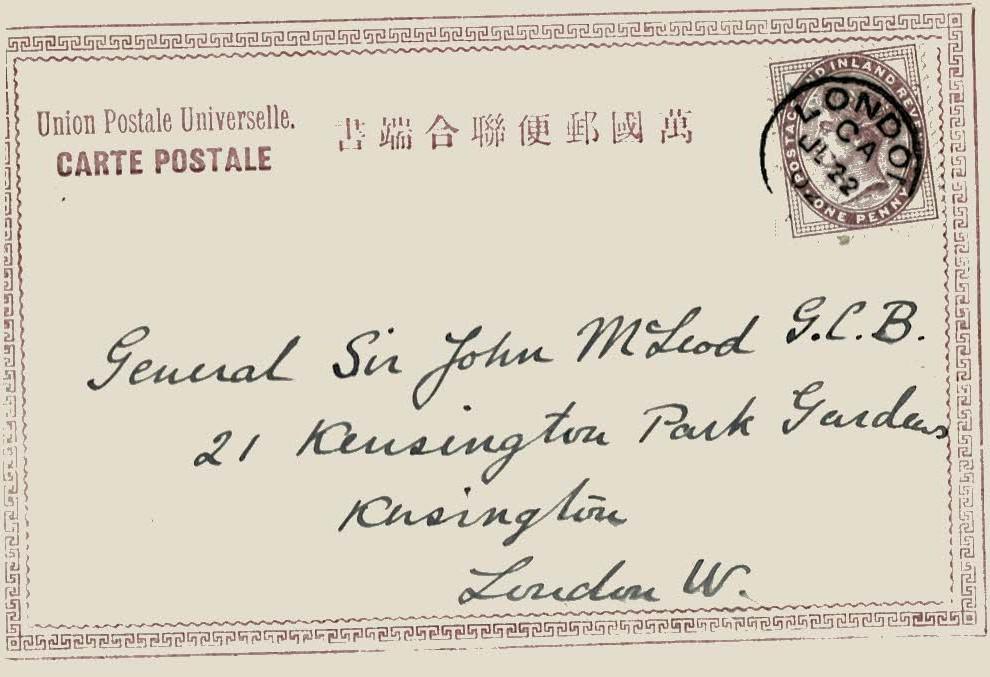 Union Postale Universelle.
CARTE POSTALE
萬國郵便聯合端書
POSTAGE AND INLAND REVENUE
ONE PENNY
LONDON
CA
JL 22
General Sir John McLeod G.C.B.
21 Kensington Park Gardens
Kensington
London W.